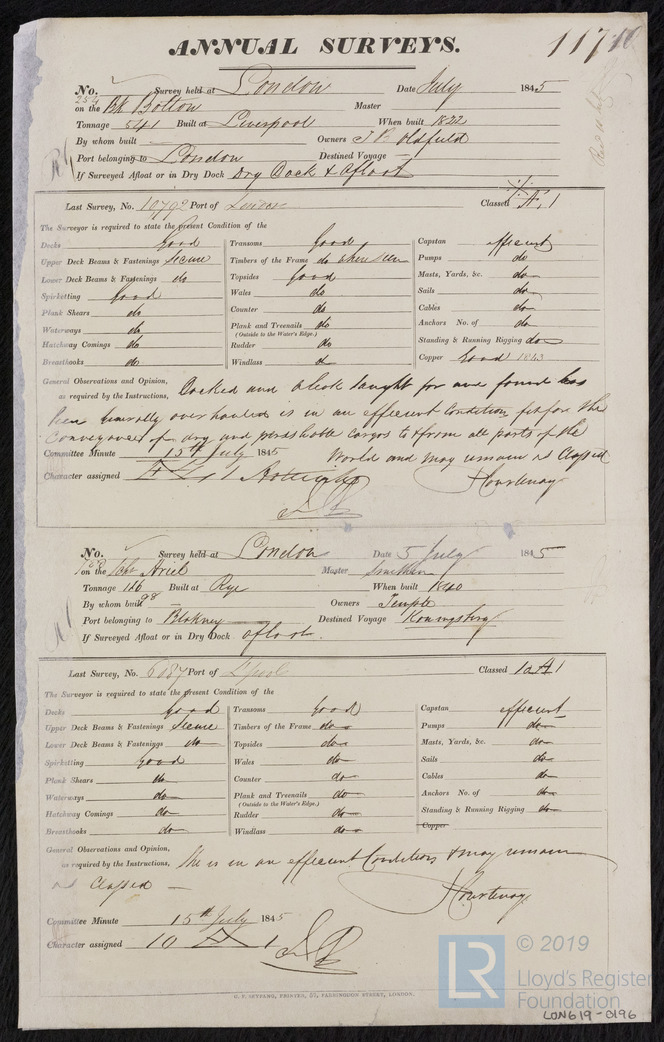 ANNUAL SURVEYS.
117
No. 254 Survey held at London Date July 1845
on the Bk Bolton Master
Tonnage 541 Built at Liverpool When built 1822
By whom built Owners J B Oldfield
Port belonging to London Destined Voyage
If Surveyed Afloat or in Dry Dock Dry Dock & Afloat
Last Survey, No. 10792 Port of London Classed Æ 1
The Surveyor is required to state the present Condition of the
Decks Good Transoms Good Capstan efficient
Upper Deck Beams & Fastenings Secure Timbers of the Frame do when seen Pumps do
Lower Deck Beams & Fastenings do Topsides good Masts, Yards, &c. do
Spirketting Good Wales do Sails do
Plank Shears do Counter do Cables do
Waterways do Plank and Treenails do Anchors No. of do
(Outside to the Water's Edge.)
Hatchway Comings do Rudder do Standing & Running Rigging do
Breasthooks do Windlass do Copper Good 1843
General Observations and Opinion, Docked and found has
as required by the Instructions,
been generally overhauled is in an efficient Condition fit for the
Conveyance of dry and perishable cargos to & from all parts of the
Committee Minute 15th July 1845 World and may remain as Classed
Character assigned Æ 1 J Courtenay
No. Survey held at London Date 5 July 1845
on the Ariel Master
Tonnage 116 Built at Rye When built 1840
98
By whom built Owners Temple
Port belonging to Blakney Destined Voyage Konningsberg
If Surveyed Afloat or in Dry Dock afloat.
Last Survey, No. 6087 Port of L'pool Classed 10 A 1
The Surveyor is required to state the present Condition of the
Decks Good Transoms Good Capstan efficient
Upper Deck Beams & Fastenings Secure Timbers of the Frame do Pumps do
Lower Deck Beams & Fastenings do Topsides do Masts, Yards, &c. do
Spirketting Good Wales do Sails do
Plank Shears do Counter do Cables do
Waterways do Plank and Treenails do Anchors No. of do
(Outside to the Water's Edge.)
Hatchway Comings do Rudder do Standing & Running Rigging do
Breasthooks do Windlass do Copper
General Observations and Opinion, She is in an efficient Condition & may remain
as required by the Instructions,
as Classed
J Courtenay
Committee Minute 15th July 1845
Character assigned 10 A 1
G. F. SEYFANG, PRINTER, 57, FARRINGDON STREET, LONDON.
LR
© 2019
Lloyd's Register
Foundation
LON619-0196